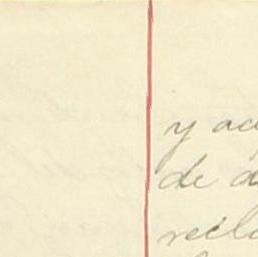 y ac
de d
recla